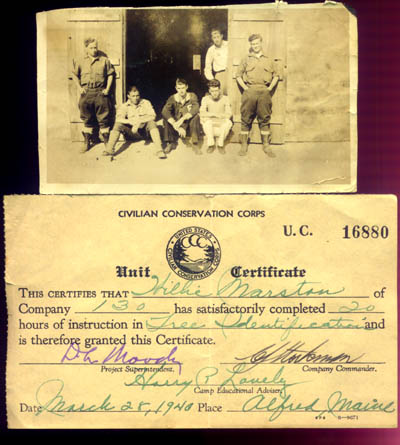 CIVILIAN CONSERVATION CORPS
U. C. 16880
UNITED STATES
CIVILIAN CONSERVATION CORPS
Unit Certificate
THIS CERTIFIES THAT Willie Marston of
Company 130 has satisfactorily completed 20
hours of instruction in Tree Identification and
is therefore granted this Certificate.
Moody
Project Superintendent.
Company Commander.
Harry P. Lovely
Camp Educational Adviser.
Date March 28, 1940 Place Alfred Maine